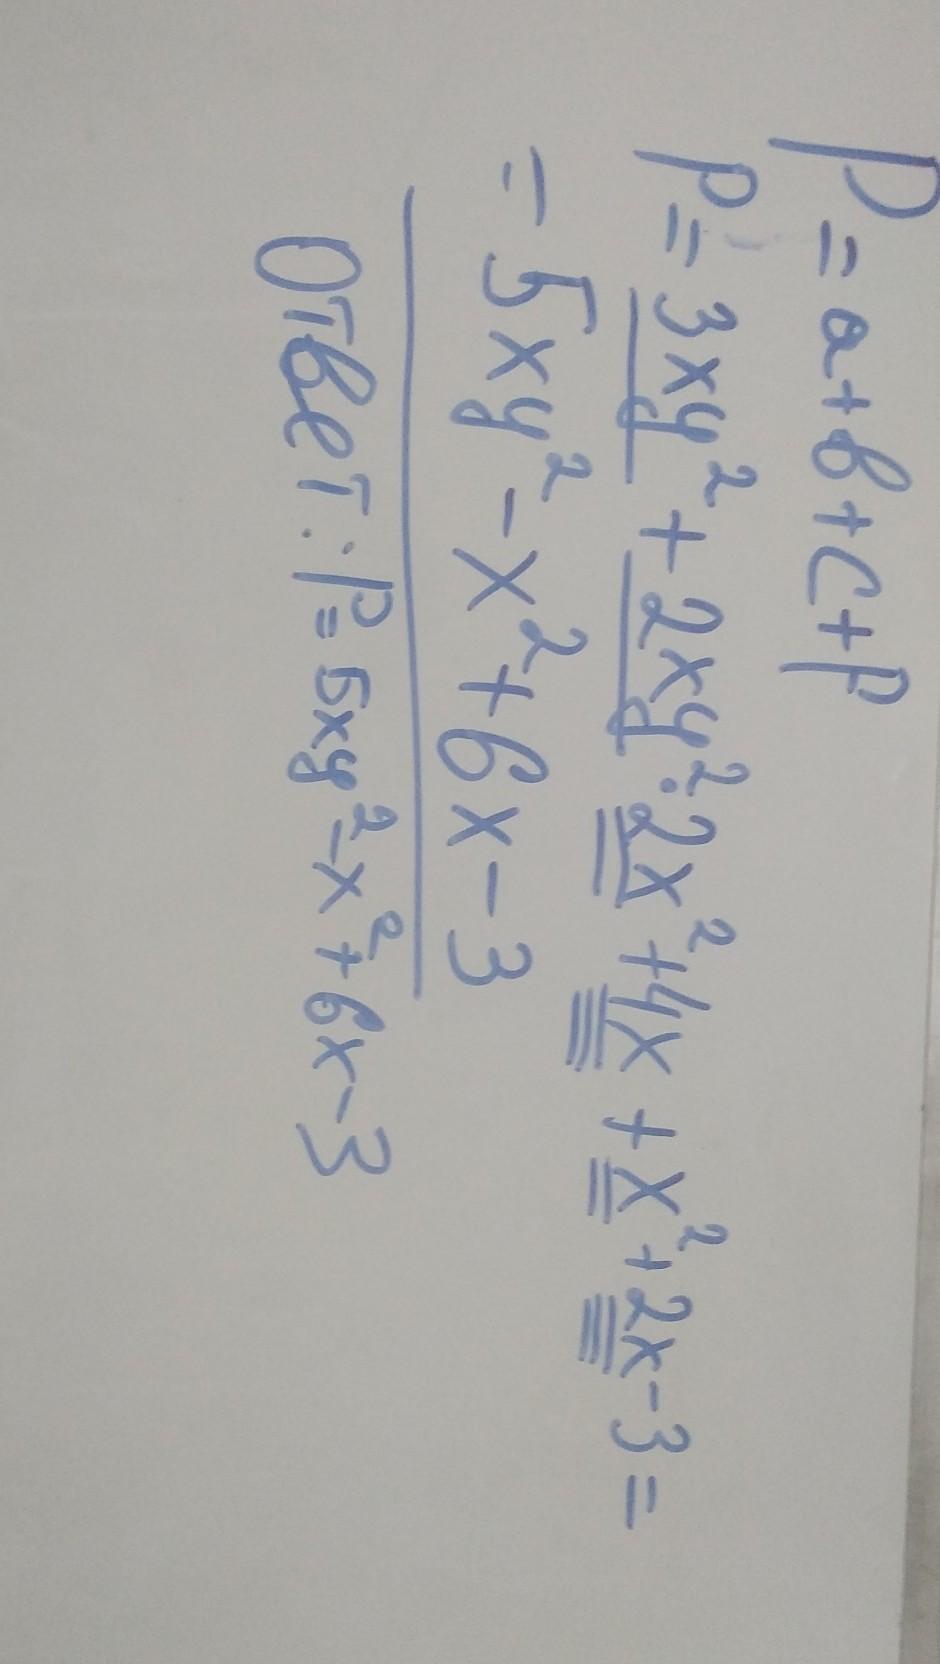 P = a + b + c + p
P = 3xy² + 2xy² · 2x² + 4x + x² + 2x - 3 =
= 5xy² - x² + 6x - 3
Ответ: P = 5xy² - x² + 6x - 3